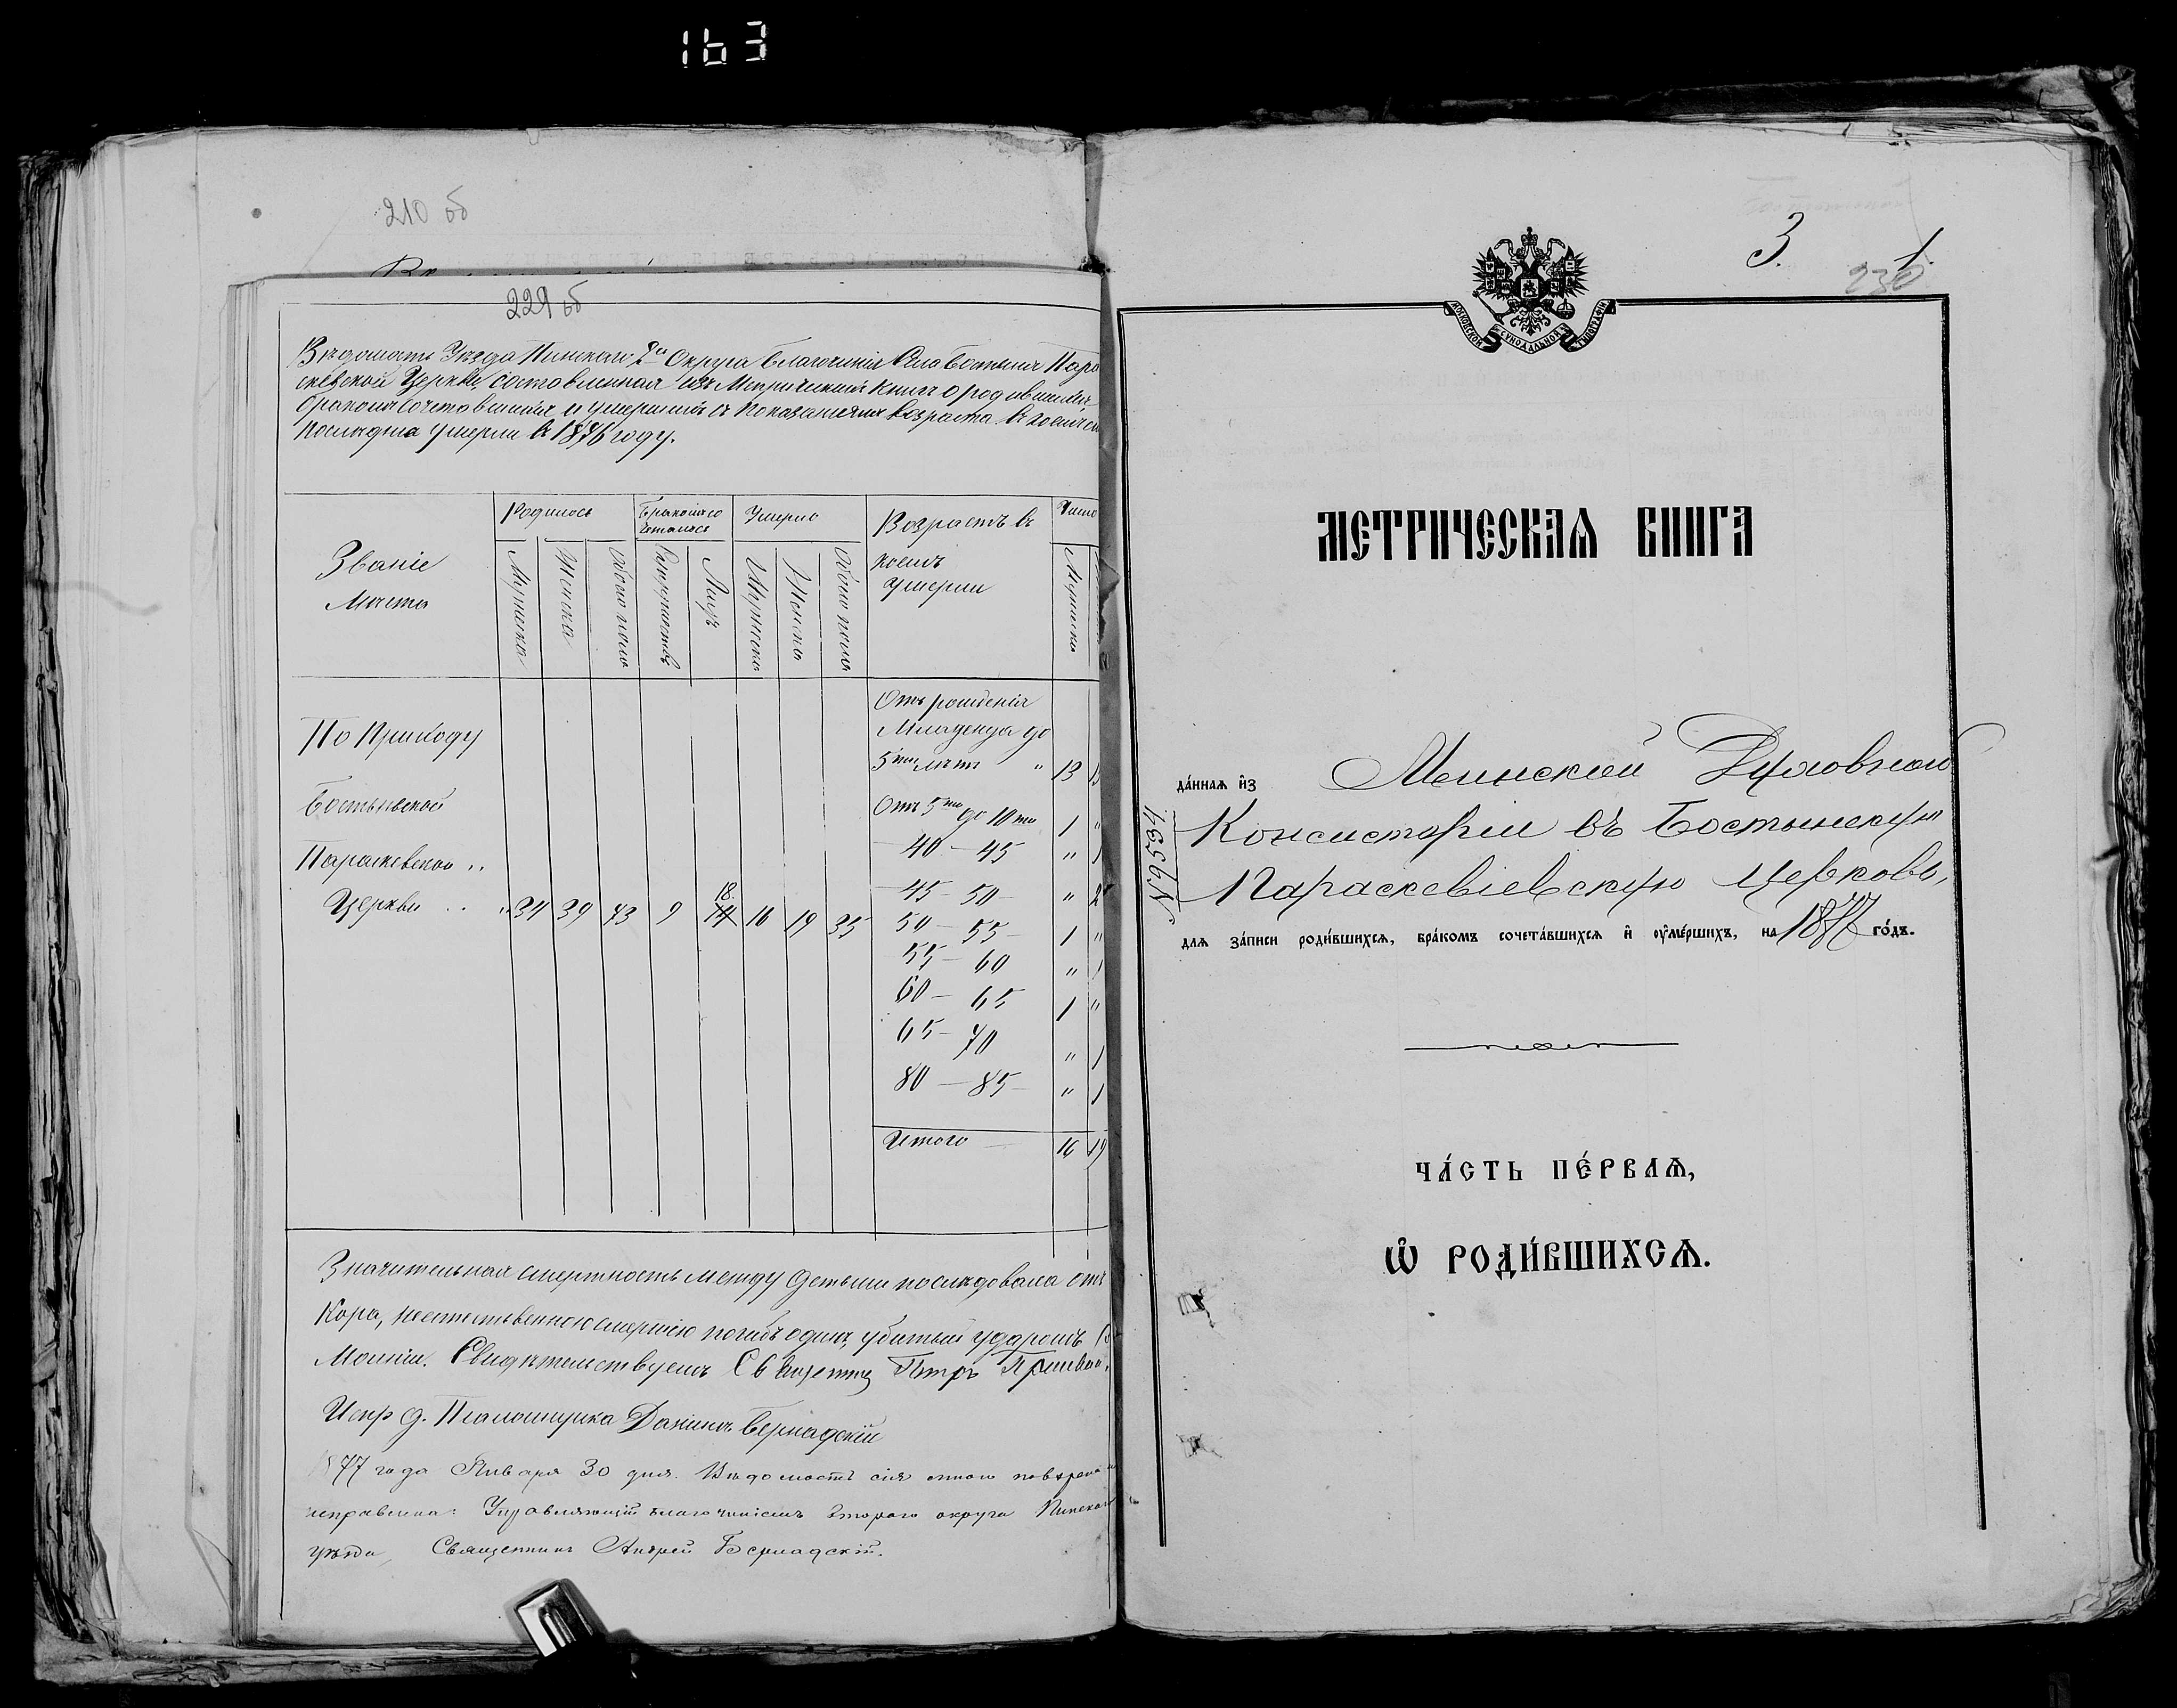 163
210 об
229 об
Вѣдомость Уѣзда Пинскаго 2го Округа Благочинія Села Бостыня Пара
скевской Церкви, составленная изъ Метрическихъ книгъ о родившихся
бракомъ сочетавшихся и умершихъ съ показаніемъ возраста въ коемъ
последніе умерли въ 1876 году.
Званіе
Мѣста
Родилось
Бракомъ со
четалось
Умерло
Возрастъ въ
коемъ
умерли
Число
Мужеска
Женска
Обоего пола
Супружествъ
Лицъ
Мужеска
Женска
Обоего пола
Мужеска
По Приходу
Бостынской
Параскевской
Церкви 34 39 73 9 18 16 19 35
Отъ рожденія
Младенца до
5ти лѣтъ " 13
Отъ 5ти до 10ти 1 "
40 – 45 " 1
45 – 50 " 2
50 – 55 1 "
55 – 60 " 1
60 – 65 1 "
65 – 70 " 1
80 – 85 " 1
Итого 16 19
Значительная смертность между детьми последовала отъ
Кора, неестественною смертію погибъ одинъ, убитый ударомъ
Молніи. Свидѣтельствуемъ Священникъ Петръ
Испр д. Псаломщика Даніилъ Бернадскій
1877 года Января 30 дня. Вѣдомость сія мною повѣрена и
исправлена: Управляющій благочиніемъ второго округа Пинскаго
уѣзда, Священникъ Андрей Бернадскій.
3. 1.
230
МОСКОВСКОЙ СѴНОДАЛЬНОЙ ТИПОГРАФІИ
МЕТРИЧЕСКАѦ КНИГА
да́ннаѧ и҆з Минской Духовной
Консисторіи въ Бостынскую
Параскевіевскую Церковь,
№ 9534
длѧ за́писи роди́вшихсѧ, бра́комъ сочета́вшихсѧ и҆ ᲂу҆ме́ршихъ, на 1877 го́дъ.
ЧА́СТЬ ПЕ́РВАѦ,
Ѡ҆ РОДИ́ВШИХСѦ.